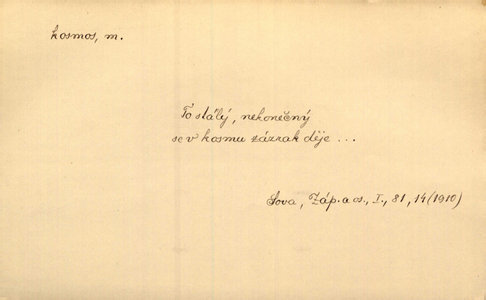 kosmos, m.
To stálý, nekonečný
se v kosmu zázrak děje ...
Sova, Záp. a os., I., 81, 14 (1910)